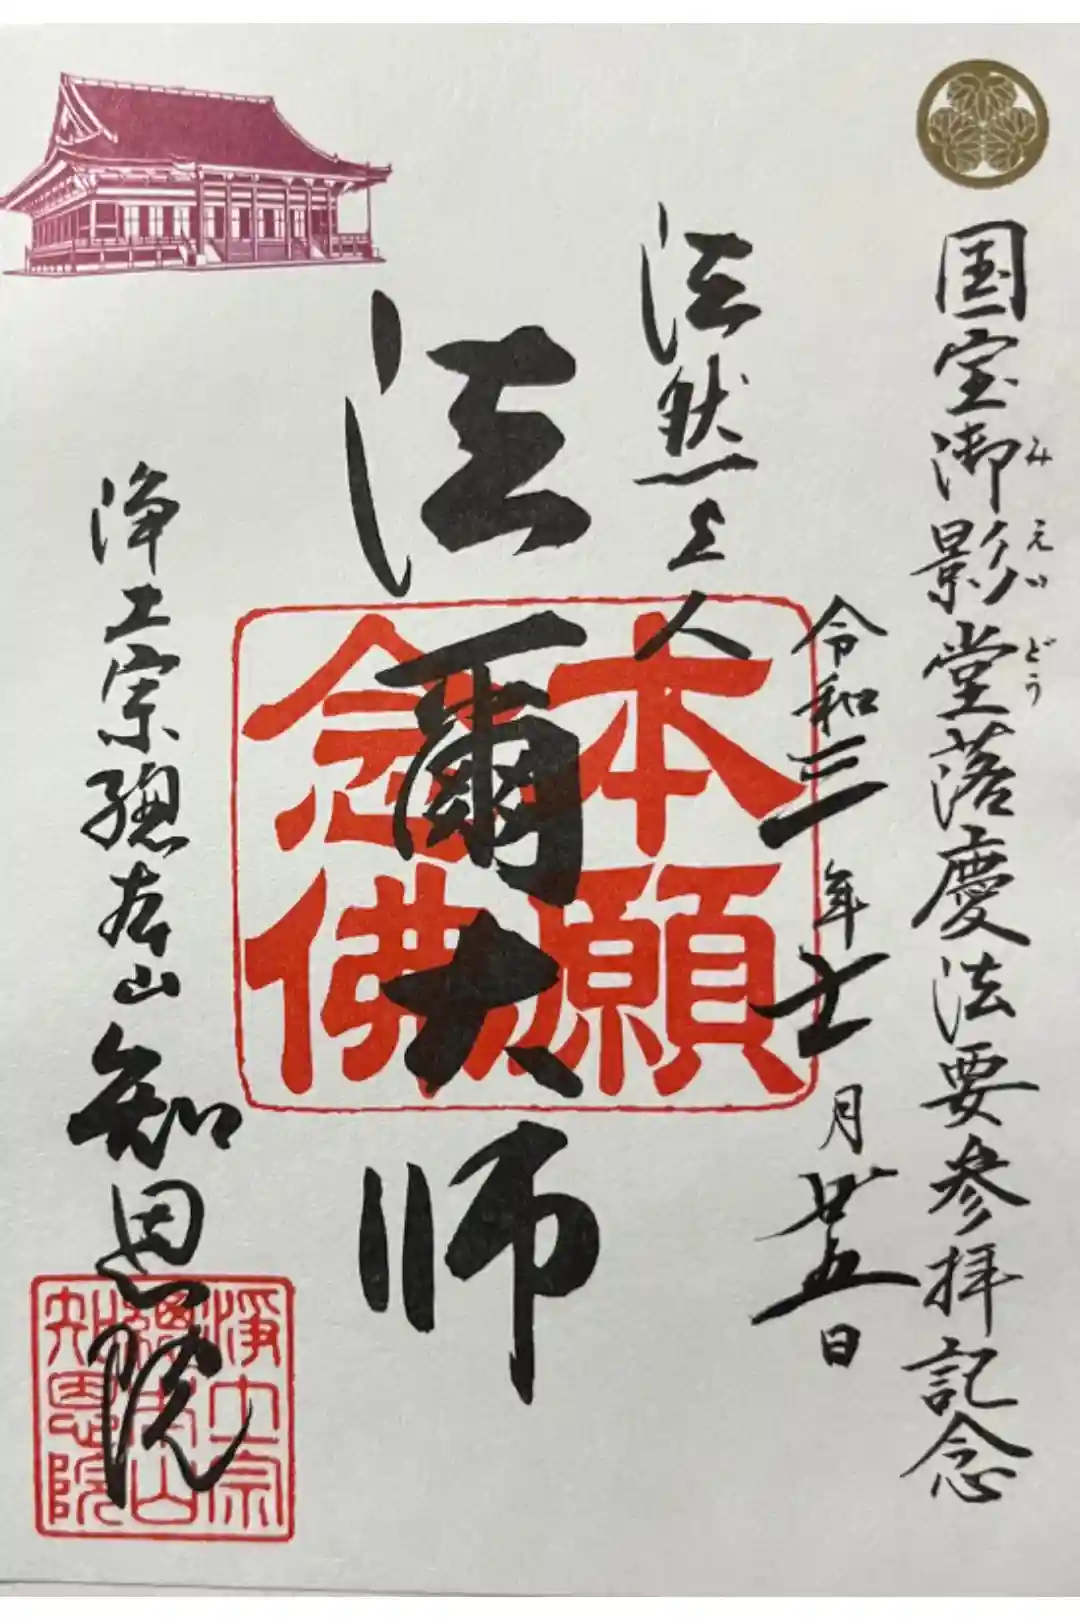 国宝御影堂落慶法要参拝記念
みえいどう
令和三年十一月廿五日
法然上人
法爾大師
本願
念佛
浄土宗總本山知恩院
淨土宗
總本山
知恩院